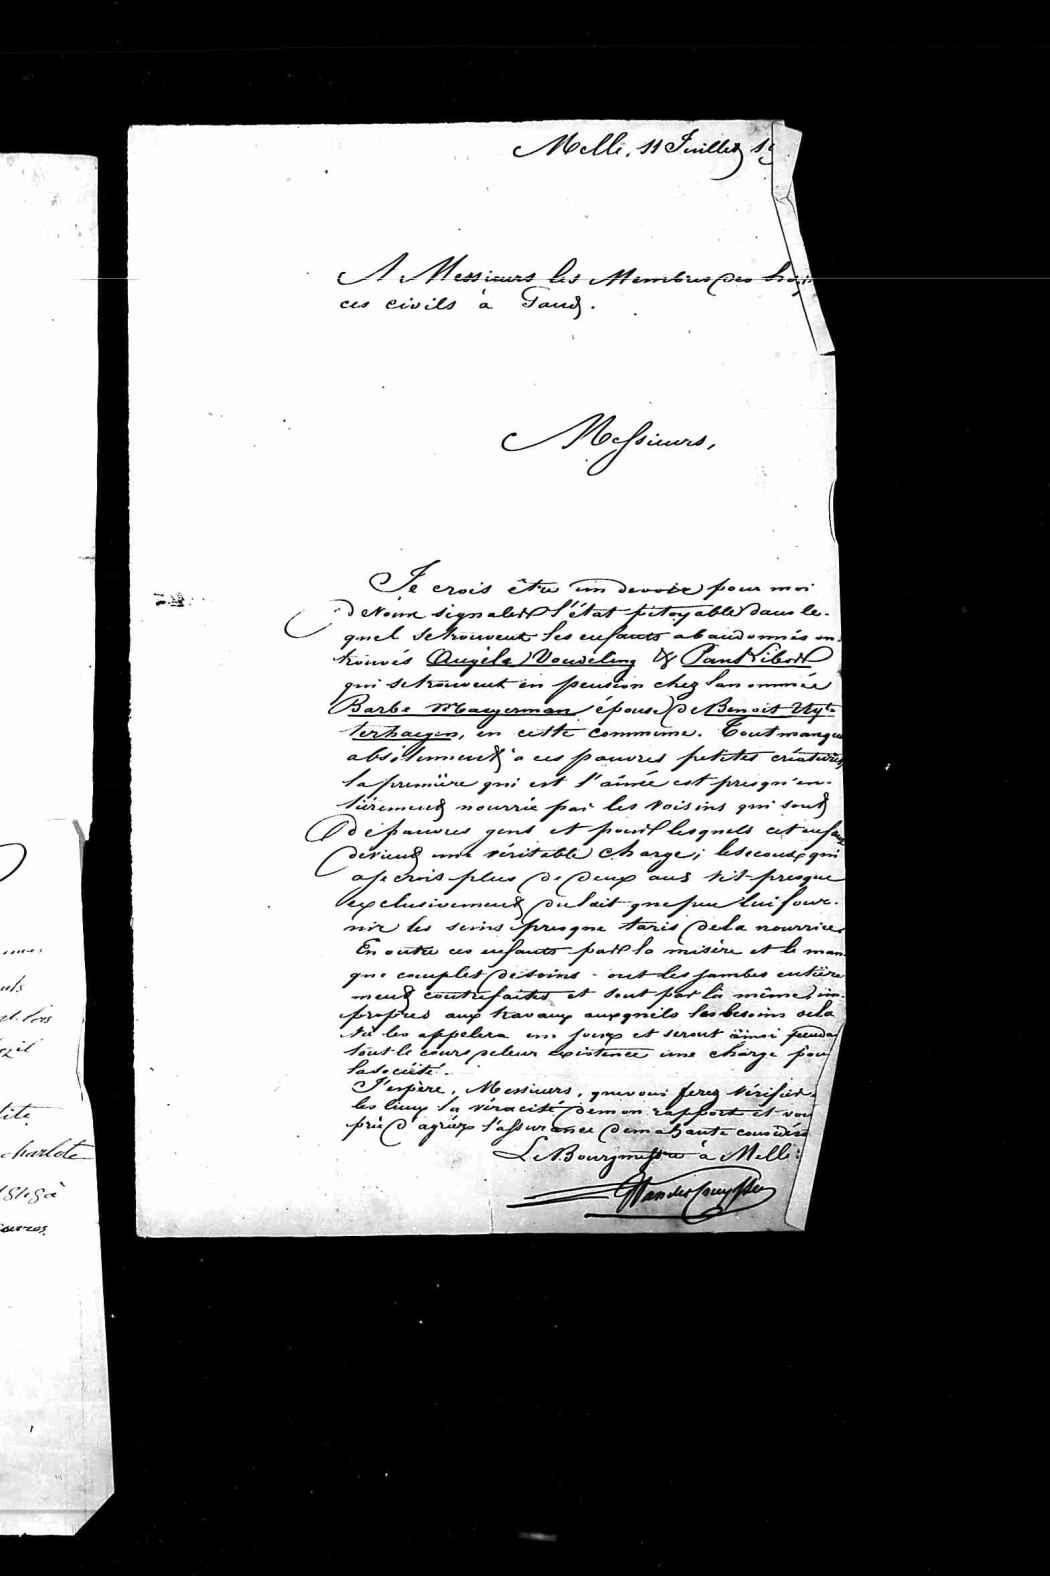 Melle, 11 Juillet 18
A Messieurs les Membres des hospi
ces civils à Gand.
Messieurs,
Je crois être un devoir pour moi
de Vous signaler l'état pitoyable dans le-
quel se trouvent les enfants abandonnés ou
trouvés Angèle Vouweling & Paul
qui se trouvent en pension chez la nommée
Barbe Maeyerman épouse de Benoit Uyt-
terhaegen, en cette commune. Tout manque
absolument à ces pauvres petites créatures,
la première qui est l'aînée est presqu'en-
tièrement nourrie par les voisins qui sont
de pauvres gens et pour lesquels cet enfant
devient une véritable charge; le second qui
a je crois plus de deux ans vit presque
exclusivement du lait que peu lui four-
nir les seins presque taris de la nourrice.
En outre ces enfants par la misère et le man
que complet de soins - ont les jambes entière
ment contrefaites et sont par là même im-
propres aux travaux auxquels les besoins de la
vie les appelera un jour et seront ainsi penda
tout le cours de leur existence une charge pour
la société.
J'espère, Messieurs, que vous ferez vérifier
les lieux la véracité de mon rapport et vou
prie d'agréer l'assurance de ma haute considéra
Le Bourgmestre à Melle:
ments
charlote
1818 à